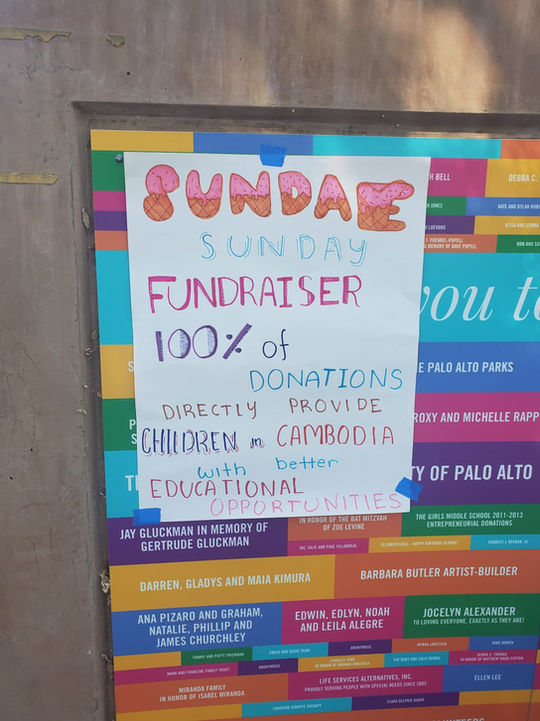 SUNDAE
SUNDAY
FUNDRAISER
100% of
DONATIONS
DIRECTLY PROVIDE
CHILDREN in CAMBODIA
with better
EDUCATIONAL
OPPORTUNITIES
H BELL
DEBRA C.
JONES
KATE AND DYLAN
JESSA AND
T, FRENKEL-POPELL
MEMORY OF DAVE POPELL
RON AND
you t
E PALO ALTO PARKS
ROXY AND MICHELLE RAPP
TY OF PALO ALTO
JAY GLUCKMAN IN MEMORY OF
GERTRUDE GLUCKMAN
IN HONOR OF THE BAT MITZVAH
OF ZOE LEVINE
THE GIRLS MIDDLE SCHOOL 2011-2013
ENTREPRENEURIAL DONATIONS
ZOE, JULIE AND PAUL VILLARREAL
ELIZABETH BELL - HAPPY BIRTHDAY GLENNA!
DARREN, GLADYS AND MAIA KIMURA
BARBARA BUTLER ARTIST-BUILDER
ANA PIZARO AND GRAHAM,
NATALIE, PHILLIP AND
JAMES CHURCHLEY
EDWIN, EDLYN, NOAH
AND LEILA ALEGRE
JOCELYN ALEXANDER
TO LOVING EVERYONE, EXACTLY AS THEY ARE!
TOMMY AND PATTY THIEMANN
ANONYMOUS
MARK AND FRANCINE FAMILY TRUST
ANONYMOUS
CHARLES YORK
IN HONOR OF HANNAH GONZALES
PAT BURT AND SALLY BEMUS
DEBRA C. THOMAS
IN HONOR OF MATTHEW WARD COTTON
MIRANDA FAMILY
IN HONOR OF ISABEL MIRANDA
LIFE SERVICES ALTERNATIVES, INC.
PROUDLY SERVING PEOPLE WITH SPECIAL NEEDS SINCE 2002
ELLEN LEE
LAUGHING GIRAFFE THERAPY
CLARA DELPHIE BAKER